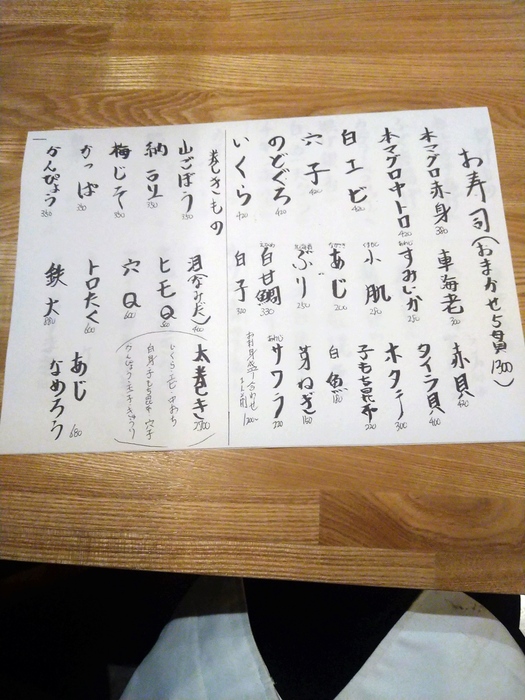 お寿司(おまかせ5貫1300)
本マグロ赤身 380
車海老 300
赤貝 420
本マグロ中トロ 420
すみいか 250
タイラ貝 400
白エビ 420
小肌 250
ホタテ 300
穴子 420
あじ 200
子もち昆布 220
のどぐろ 420
ぶり 250
白魚
いくら 420
白甘鯛 330
芽ねぎ 150
白子 300
サワラ 250
お刺身盛り合わせ
巻きもの
山ごぼう 350
涙(なみだ) 400
太巻き
納豆 350
ヒモQ
いくら
梅じそ 350
穴Q 600
白身 子もち昆布 穴子
かっぱ 350
トロたく 600
かんぴょう 玉子 きゅうり
かんぴょう 350
鉄火
あじ
なめろう 680